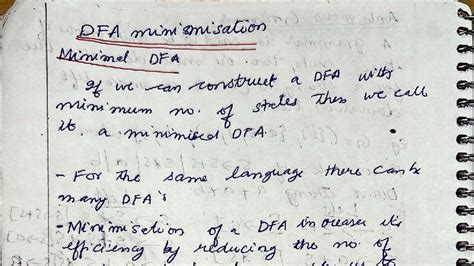 DFA minimisation
Minimal DFA
If we can construct a DFA with
minimum no. of states then we call
it a minimised DFA
- For the same language there can be
many DFA's
- Minimisation of a DFA increases its
efficiency by reducing the no of